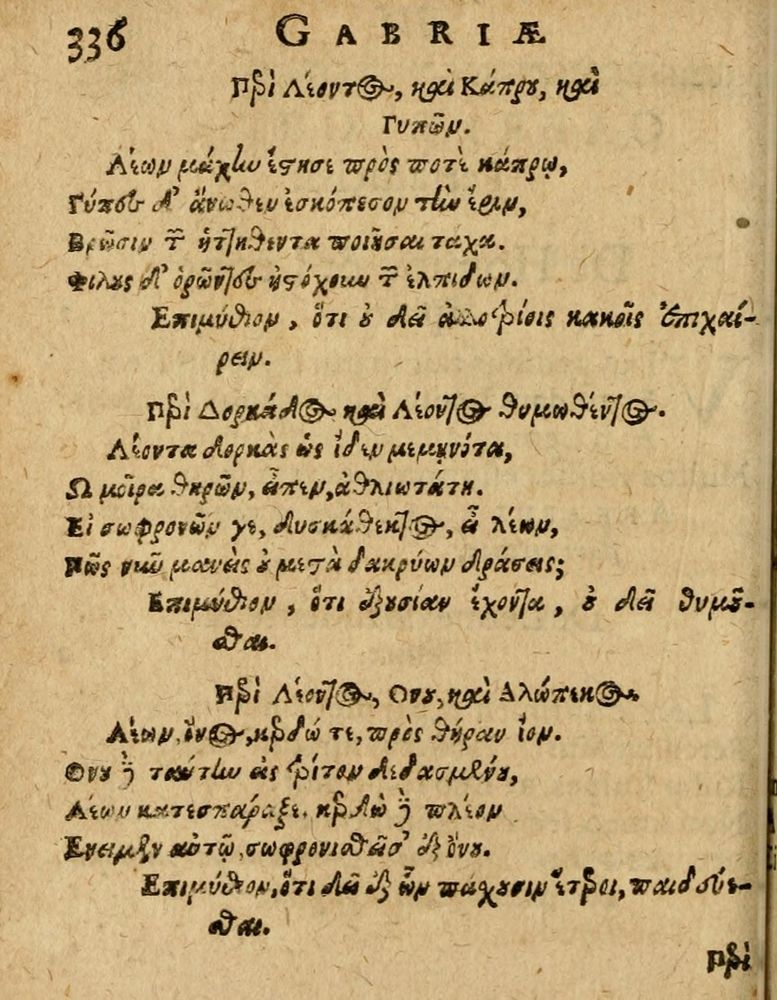 336 GABRIÆ
Περὶ Λέοντος, καὶ Κάπρου, καὶ
Γυπῶν.
Λέων μάχην ἔστησε πρὸς ποτὲ κάπρῳ,
Γύπες δ' ἄνωθεν ἐσκόπεσον τὴν ἔριν,
Βρῶσιν τ ἡττηθέντα ποιῆσαι ταχα.
Φίλους δ' ὁρῶντες ἠστόχουν τ ἐλπίδων.
Επιμύθιον, ὅτι οὐ δεῖ ἀλλοτρίοις κακοῖς ἐπιχαί-
ρειν.
Περὶ Δορκάδος καὶ Λέοντος θυμωθέντος.
Λέοντα δορκὰς ὡς ἴδεν μεμηνότα,
Ω μοῖρα θηρῶν, εἶπεν, ἀθλιωτάτη.
Εἰ σωφρονῶν γε, δυσκάθεκτος, εἶ λέων,
Πῶς νῦν μανεὶς οὐ μετὰ δακρύων δράσεις;
Επιμύθιον, ὅτι ἐξουσίαν ἔχοντα, οὐ δεῖ θυμοῦ-
σθαι.
Περὶ Λέοντος, Ονου, καὶ Αλώπεκος.
Λέων, ὄνος, κερδώ τε, πρὸς θήραν ἴον.
Ονου δὲ ταύτην εἰς τρίτον δεδασμένου,
Λέων κατεσπάραξε. κερδὼ δὲ πλέον
Ενειμεν αὐτῷ, σωφρονισθεῖσ' ἐξ ὄνου.
Επιμύθιον, ὅτι δεῖ ἐξ ὧν πάσχουσιν ἕτεροι, παιδεύε-
σθαι.
Περὶ